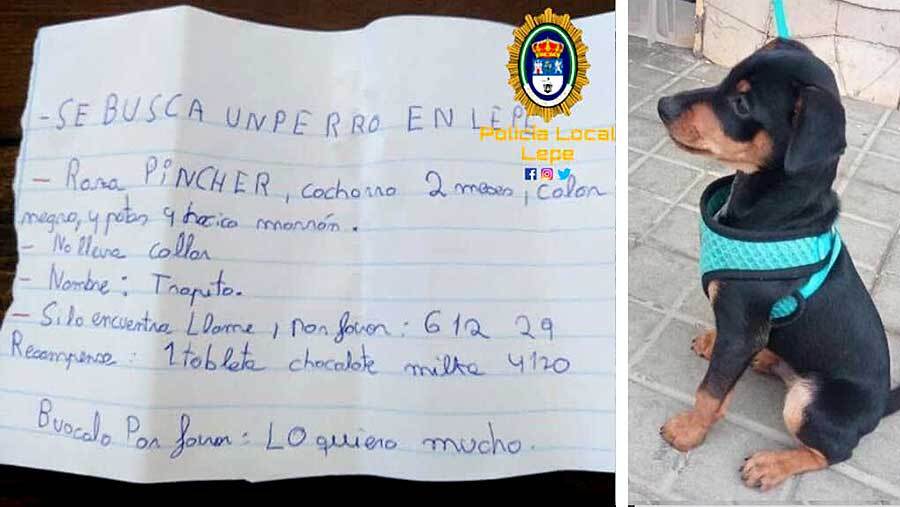 - SE BUSCA UN PERRO EN LEPE
Policía Local
Lepe
- Raza PINCHER, cachorro 2 meses, color
negro, y patas y hocico marrón.
- No lleva collar
- Nombre: Trapito.
- Si lo encuentra Llame, por favor: 612 29
Recompensa: 1 tableta chocolate milka 4120
Buscalo Por favor: LO quiero mucho.